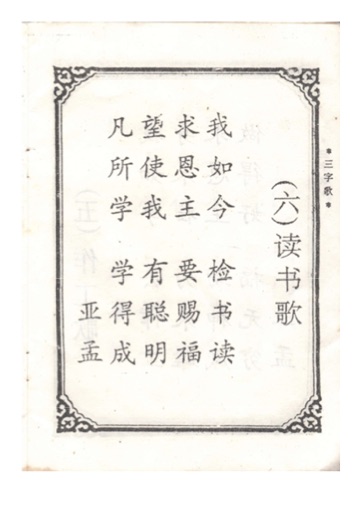 *三字歌*
(六)读书歌
我如今 检书读
求恩主 要赐福
望使我 有聪明
凡所学 学得成
亚孟